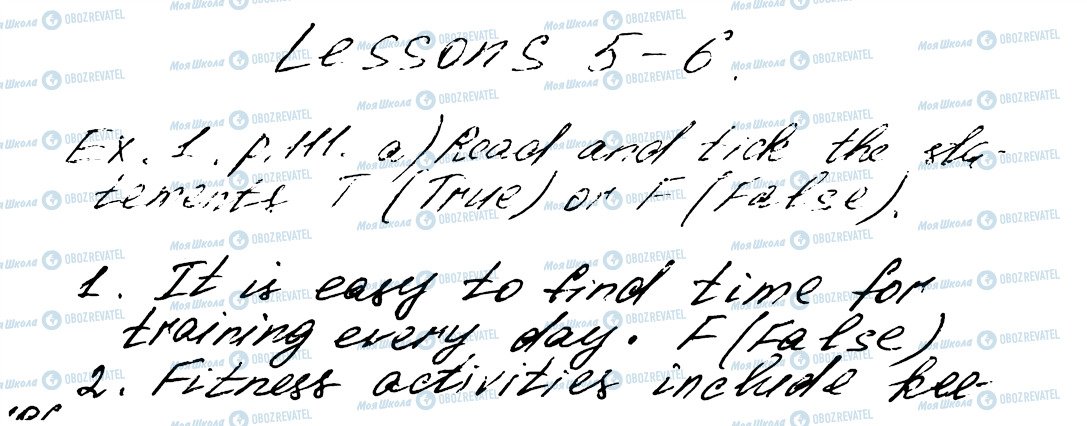 Lessons 5-6.
Ex. 1. p.111. a) Read and tick the sta-
tements T (True) or F (False).
1. It is easy to find time for
training every day. F (False)
2. Fitness activities include kee-